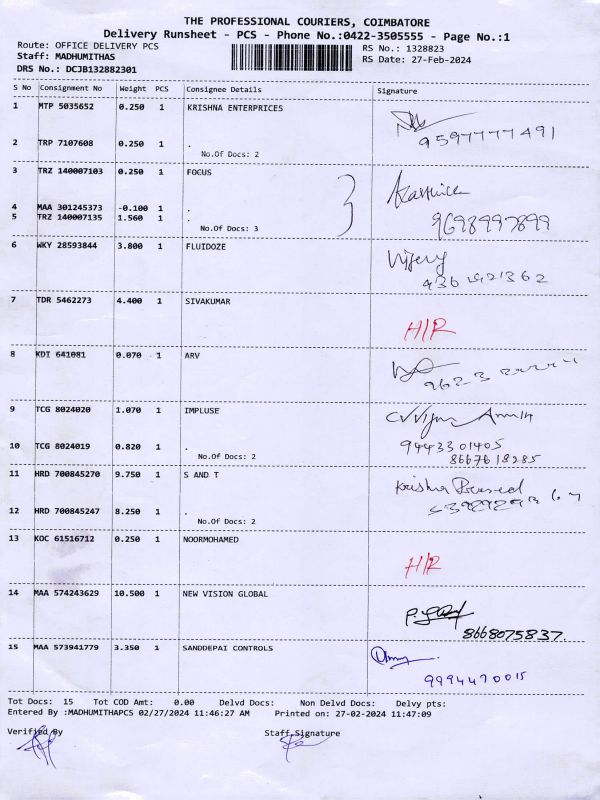 THE PROFESSIONAL COURIERS, COIMBATORE
Delivery Runsheet - PCS - Phone No.:0422-3505555 - Page No.:1
Route: OFFICE DELIVERY PCS
Staff: MADHUMITHAS
DRS No.: DCJB132882301
RS No.: 1328823
RS Date: 27-Feb-2024
S No Consignment No Weight PCS Consignee Details Signature
1 MTP 5035652 0.250 1 KRISHNA ENTERPRICES
9597777491
2 TRP 7107608 0.250 1 .
No.Of Docs: 2
3 TRZ 140007103 0.250 1 FOCUS
4 MAA 301245373 -0.100 1 .
5 TRZ 140007135 1.560 1 .
No.Of Docs: 3
9698997899
6 WKY 28593844 3.800 1 FLUIDOZE
7 TDR 5462273 4.400 1 SIVAKUMAR
H/R
8 KDI 641081 0.070 1 ARV
9 TCG 8024020 1.070 1 IMPLUSE
10 TCG 8024019 0.820 1 .
9443301405
No.Of Docs: 2
8667618285
11 HRD 700845270 9.750 1 S AND T
12 HRD 700845247 8.250 1 .
No.Of Docs: 2
13 KOC 61516712 0.250 1 NOORMOHAMED
H/R
14 MAA 574243629 10.500 1 NEW VISION GLOBAL
8668075837.
15 MAA 573941779 3.350 1 SANDDEPAI CONTROLS
9994470015
Tot Docs: 15 Tot COD Amt: 0.00 Delvd Docs: Non Delvd Docs: Delvy pts:
Entered By :MADHUMITHAPCS 02/27/2024 11:46:27 AM Printed on: 27-02-2024 11:47:09
Verified By Staff Signature